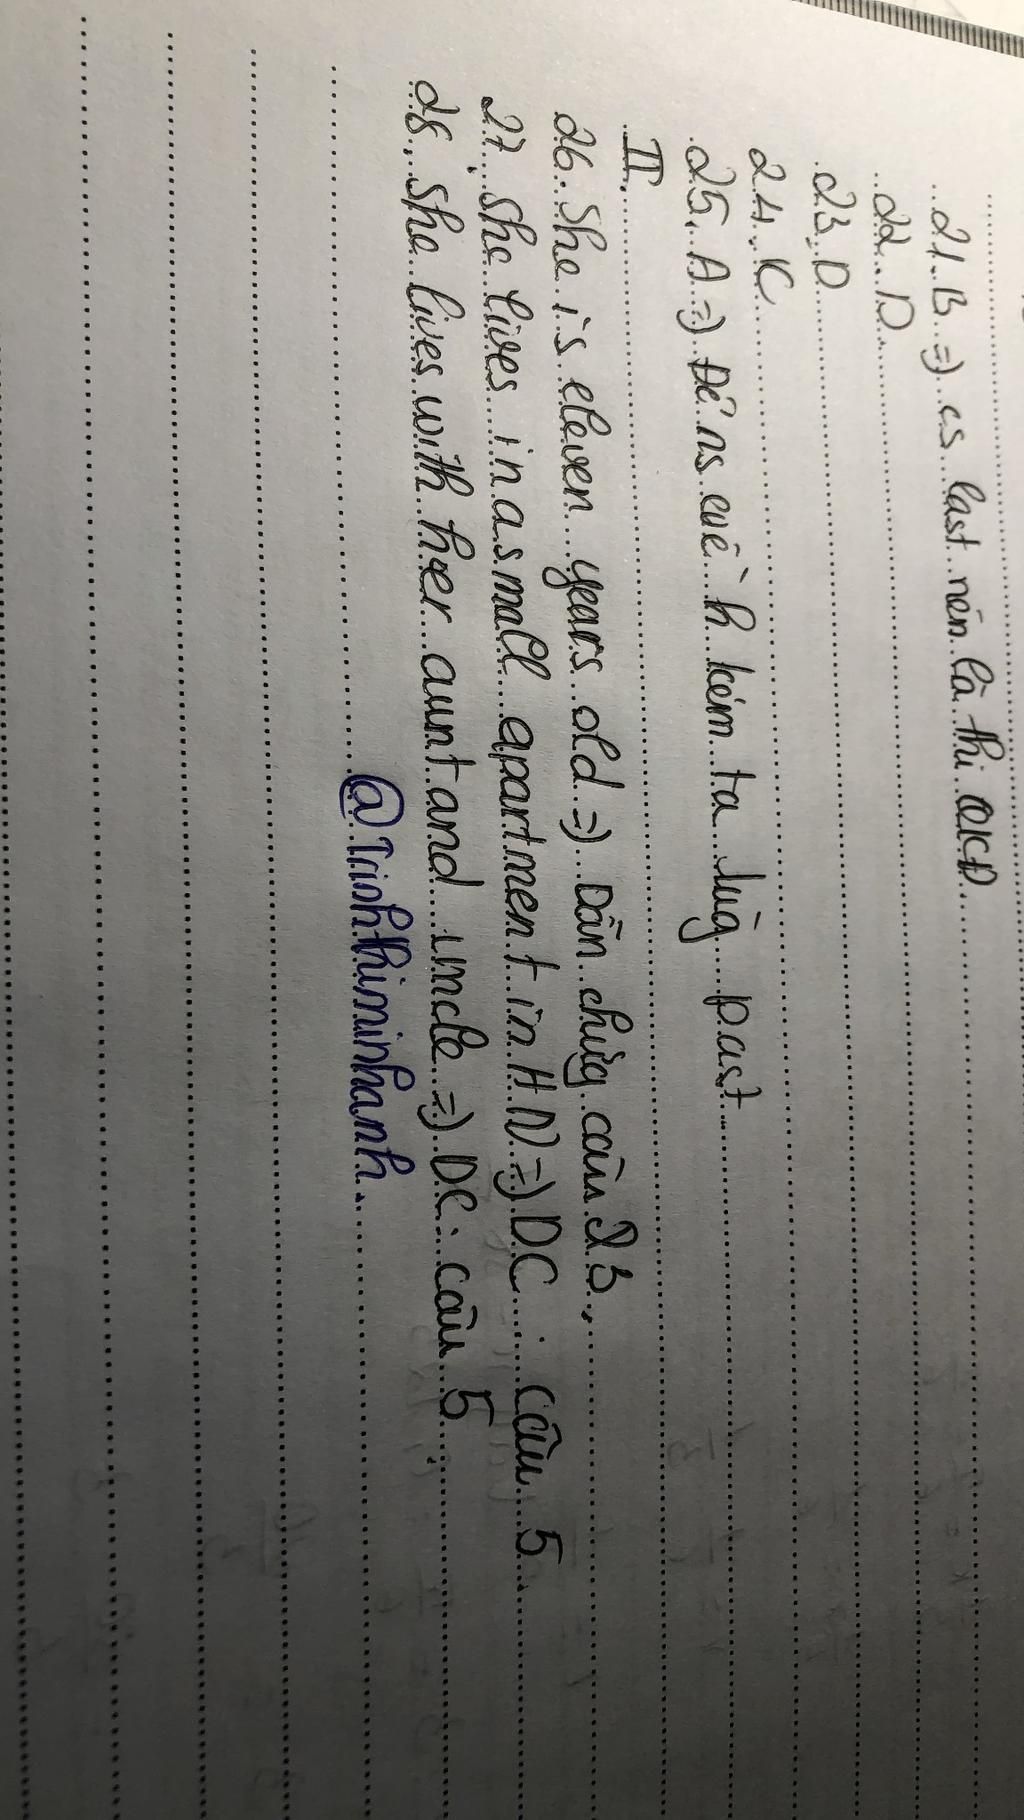 21. B => cs last nên là thì QKĐ
22. D
23. D
24. C
25. A => Để ns cuề h kém ta dùg past
II.
26. She is eleven years old => Dẫn chứg câu 2 3.
27. She lives in a small apartment in HN => DC : câu 5
28. She lives with her aunt and uncle => DC : câu 5.
@Trinhthiminhanh.